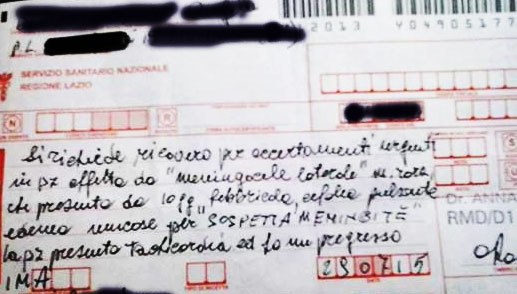 2013 404905177
P. L.
SERVIZIO SANITARIO NAZIONALE
REGIONE LAZIO
N R
Si richiede ricovero per accertamenti urgenti
in pz affetta da "meningocele laterale" m. rara,
che presenta da 10 gg febbricola, cefalea pulsante
edema mucose per "SOSPETTA MENINGITE"
la pz presenta tachicardia ed ha un pregresso
IMA
290715
Dr. ANNA
RMD/D1